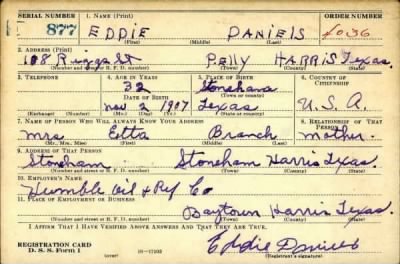 SERIAL NUMBER 1. NAME (Print) ORDER NUMBER
877 EDDIE DANIELS 4036
(First) (Middle) (Last)
2. ADDRESS (Print)
108 Riggs St Pelly HARRIS Texas.
(Number and street or R. F. D. number) (Town) (County) (State)
3. TELEPHONE 4. AGE IN YEARS 5. PLACE OF BIRTH 6. COUNTRY OF CITIZENSHIP
32 Stoneham
DATE OF BIRTH (Town or county)
Nov 2 1907 Texas U.S.A.
(Exchange) (Number) (Mo.) (Day) (Yr.) (State or country)
7. NAME OF PERSON WHO WILL ALWAYS KNOW YOUR ADDRESS 8. RELATIONSHIP OF THAT PERSON
Mrs Etta Branch Mother.
(Mr., Mrs., Miss) (First) (Middle) (Last)
9. ADDRESS OF THAT PERSON
Stoneham Stoneham Harris Texas.
(Number and street or R. F. D. number) (Town) (County) (State)
10. EMPLOYER'S NAME
Humble Oil & Ref Co
11. PLACE OF EMPLOYMENT OR BUSINESS
Baytown Harris Texas.
(Number and street or R. F. D. number) (Town) (County) (State)
I AFFIRM THAT I HAVE VERIFIED ABOVE ANSWERS AND THAT THEY ARE TRUE.
REGISTRATION CARD Eddie Daniels
D. S. S. Form 1 16—17105 (Registrant's signature)